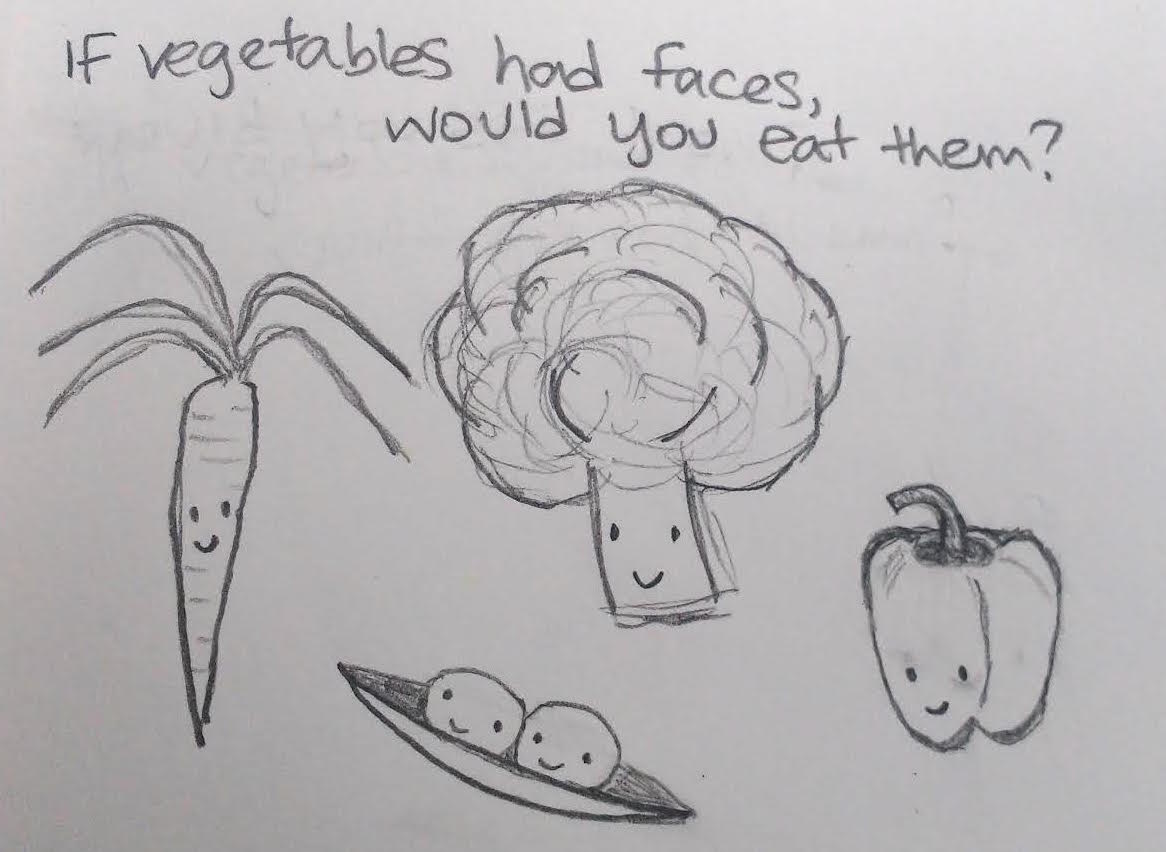 If vegetables had faces,
would you eat them?